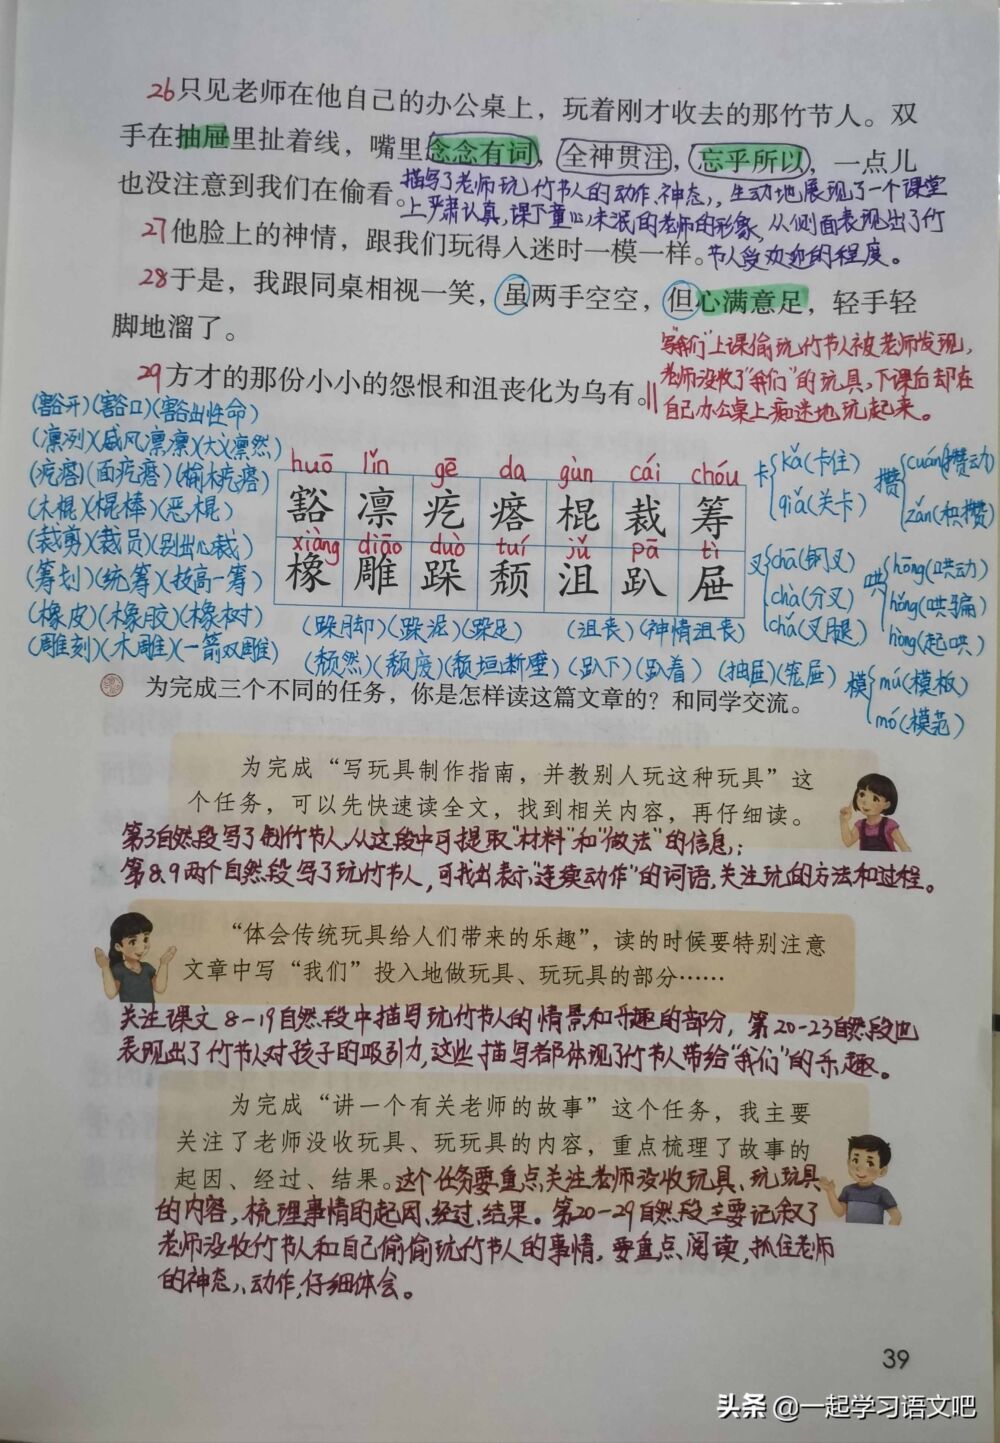 26只见老师在他自己的办公桌上，玩着刚才收去的那竹节人。双
手在抽屉里扯着线，嘴里念念有词，全神贯注，忘乎所以，一点儿
也没注意到我们在偷看。
描写了老师玩竹节人的动作、神态，生动地展现了一个课堂
上严肃认真，课下童心未泯的老师的形象，从侧面表现出了竹
节人受欢迎的程度。
27他脸上的神情，跟我们玩得入迷时一模一样。
28于是，我跟同桌相视一笑，虽两手空空，但心满意足，轻手轻
脚地溜了。
29方才的那份小小的怨恨和沮丧化为乌有。
写“我们”上课偷玩竹节人被老师发现，
老师没收了“我们”的玩具，下课后却在
自己办公桌上痴迷地玩起来。
(豁开)(豁口)(豁出性命)
(凛冽)(威风凛凛)(大义凛然)
(疙瘩)(面疙瘩)(榆木疙瘩)
(木棍)(棍棒)(恶棍)
(裁剪)(裁员)(别出心裁)
(筹划)(统筹)(技高一筹)
(橡皮)(橡胶)(橡树)
(雕刻)(木雕)(一箭双雕)
huō lǐn gē da gùn cái chóu
豁 凛 疙 瘩 棍 裁 筹
xiàng diāo duò tuí jǔ pā tì
橡 雕 跺 颓 沮 趴 屉
(跺脚)(跺泥)(跺足) (沮丧)(神情沮丧)
(颓然)(颓废)(颓垣断壁) (趴下)(趴着) (抽屉)(笼屉)
卡 kǎ(卡住)
qiǎ(关卡)
攒 cuán(攒动)
zǎn(积攒)
叉 chā(钢叉)
chà(分叉)
chǎ(叉腿)
哄 hōng(哄动)
hǒng(哄骗)
hòng(起哄)
模 mú(模板)
mó(模范)
为完成三个不同的任务，你是怎样读这篇文章的？和同学交流。
为完成“写玩具制作指南，并教别人玩这种玩具”这
个任务，可以先快速读全文，找到相关内容，再仔细读。
第3自然段写了制竹节人，从这段中可提取“材料”和“做法”的信息；
第8、9两个自然段写了玩竹节人，可找出表示“连续动作”的词语，关注玩的方法和过程。
“体会传统玩具给人们带来的乐趣”，读的时候要特别注意
文章中写“我们”投入地做玩具、玩玩具的部分……
关注课文8-19自然段中描写玩竹节人的情景和乐趣的部分，第20-23自然段也
表现出了竹节人对孩子的吸引力，这些描写都体现了竹节人带给“我们”的乐趣。
为完成“讲一个有关老师的故事”这个任务，我主要
关注了老师没收玩具、玩玩具的内容，重点梳理了故事的
起因、经过、结果。这个任务要重点关注老师没收玩具、玩玩具
的内容，梳理事情的起因、经过、结果。第20-29自然段主要记叙了
老师没收竹节人和自己偷偷玩竹节人的事情，要重点阅读，抓住老师
的神态、动作，仔细体会。
39
头条 @一起学习语文吧